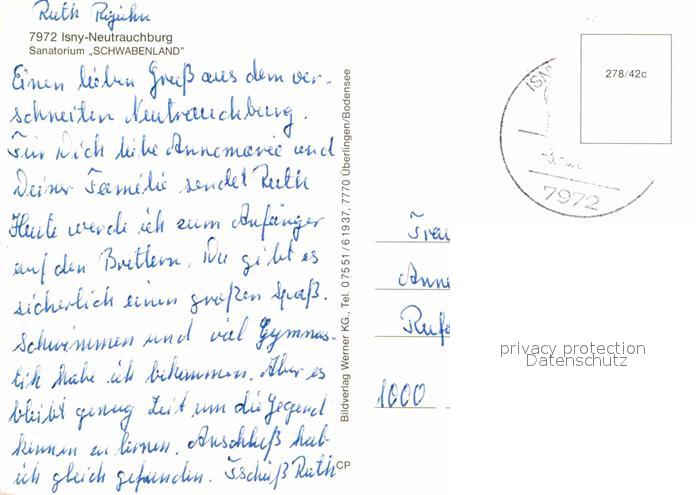 Ruth
7972 Isny-Neutrauchburg
Sanatorium „SCHWABENLAND"
Einen lieben Gruß aus dem ver-
schneiten Neutrauchburg.
Für Dich liebe Annemarie und
Deiner Familie sendet Ruth
Heute werde ich zum Anfänger
auf den Brettern. Da gibt es
sicherlich einen großen Spaß.
Schwimmen und viel Gymnas-
tik habe ich bekommen. Aber es
bleibt genug Zeit um die Gegend
kennen zu lernen. Anschluß hab
ich gleich gefunden. Tschüß Ruth
CP
Bildverlag Werner KG., Tel. 07551/61937, 7770 Überlingen/Bodensee
278/42c
ISN
7972
Frau
Anne
1000
privacy protection
Datenschutz